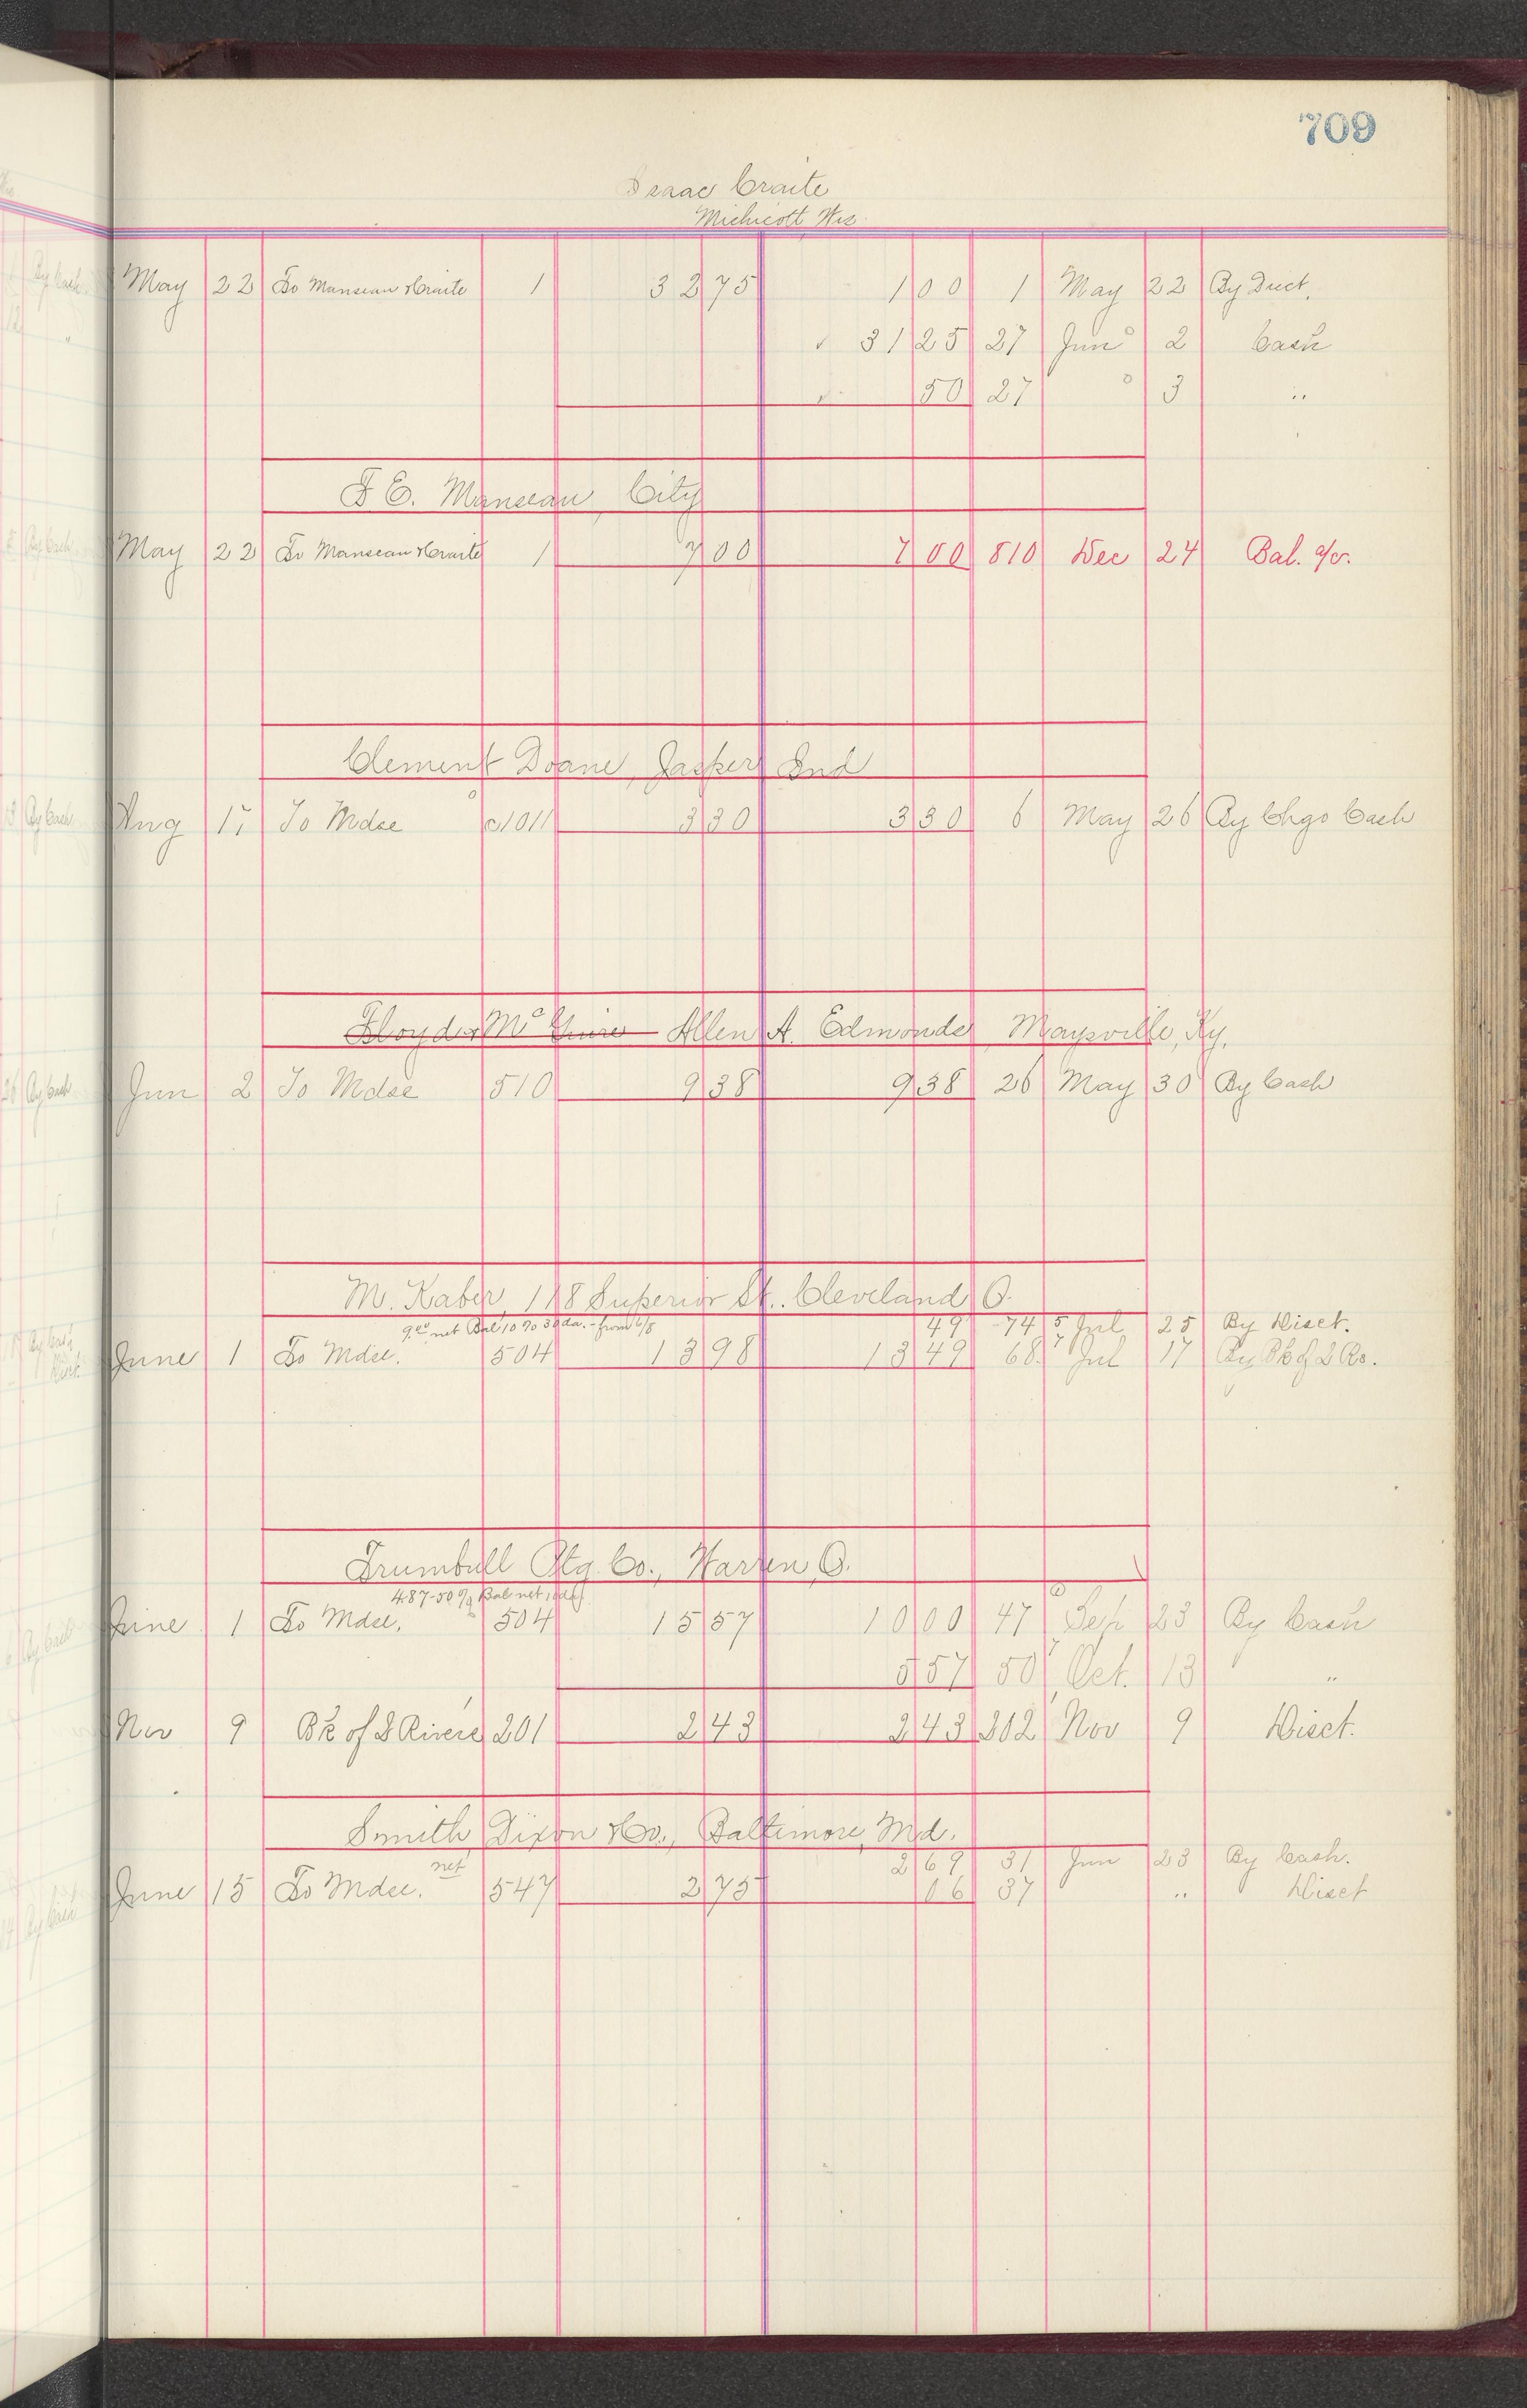 709
Isaac Craite
Michicott Wis.
May 22 To Manseau & Craite 1 32 75 1 00 1 May 22 By Disct.
✓ 31 25 27 Jun 2 Cash
✓ 50 27 " 3 "
F E. Manseau, City
May 22 To Manseau & Craite 1 7 00 7 00 810 Dec 24 Bal. a/c.
Clement Doane, Jasper Ind
Aug 17 To Mdse c1011 3 30 3 30 6 May 26 By Chgo Cash
Lloyd & McGuire Allen A. Edmonds, Maysville, Ky.
Jun 2 To Mdse 510 9 38 9 38 26 May 30 By Cash
M. Kaber, 118 Superior St. Cleveland, O.
9.00 net Bal 10 % 30 da. - from 6/8 49 74 Jul 25 By Disct.
June 1 To Mdse. 504 13 98 13 49 68 Jul 17 By Bk of 2 Rs.
Trumbull Ptg. Co., Warren, O.
4.87-50% Bal net
June 1 To Mdse. 504 15 57 10 00 47 Sep 23 By Cash
5 57 50 Oct. 13 "
Nov 9 Bk of 2 Rivers 201 2 43 2 43 202 Nov 9 Disct.
Smith Dixon & Co., Baltimore, Md.
net 2 69 31 Jun 23 By Cash.
June 15 To Mdse. 547 2 75 06 37 " Disct